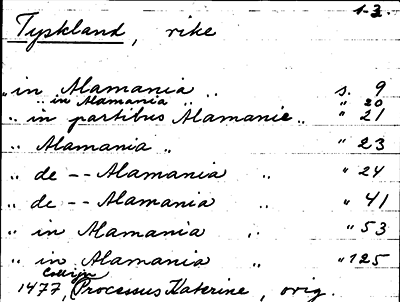 1-3.
Tyskland, rike
„in Alamania „ s. 9
„ in Alamania „ " 20
„ in partibus Alamanie „ " 21
„ Alamania „ " 23
„ de -- Alamania „ " 24
„ de -- Alamania „ " 41
„ in Alamania „ " 53
„ in Alamania „ " 125
Collijn
1477, Processus Katerine, orig.